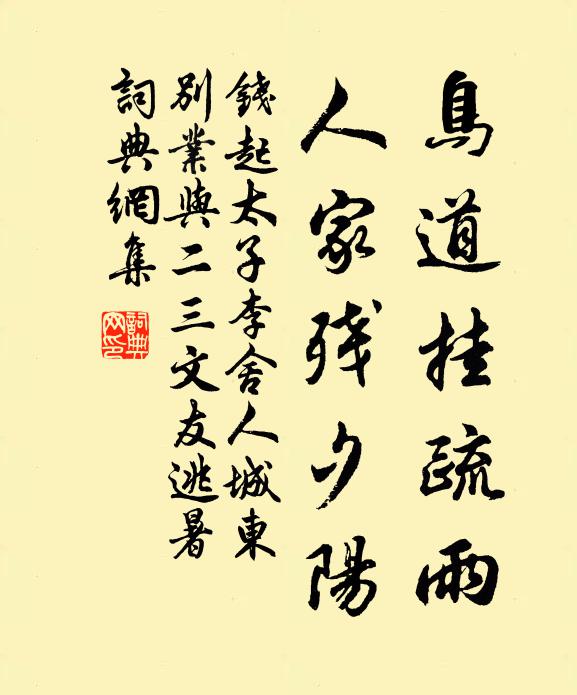 鳥道挂疏雨
人家殘夕陽
錢起太子李舍人城東
別業與二三文友逃暑
詞典網集
詞典網印